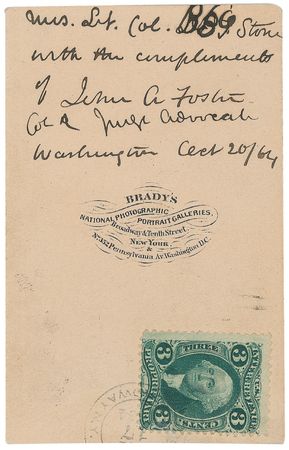 Mrs. Lt. Col. Stone
1869
with the compliments
of John A Foster
Col & Judge Advocate
Washington Oct 20/64
BRADY'S
NATIONAL PHOTOGRAPHIC
PORTRAIT GALLERIES,
Broadway & Tenth Street
NEW YORK
&
No. 352 Pennsylvania Av. Washington D.C.
THREE
3 3
INTER. REVENUE
PROPRIETARY
3 CENTS 3